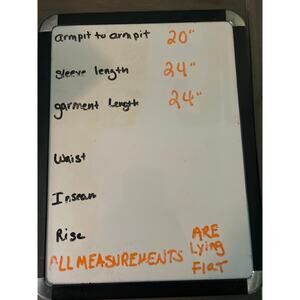 armpit to armpit 20"
sleeve length 24"
garment length 24"
Waist
Inseam
Rise
ALL MEASUREMENTS ARE
Lying
Flat